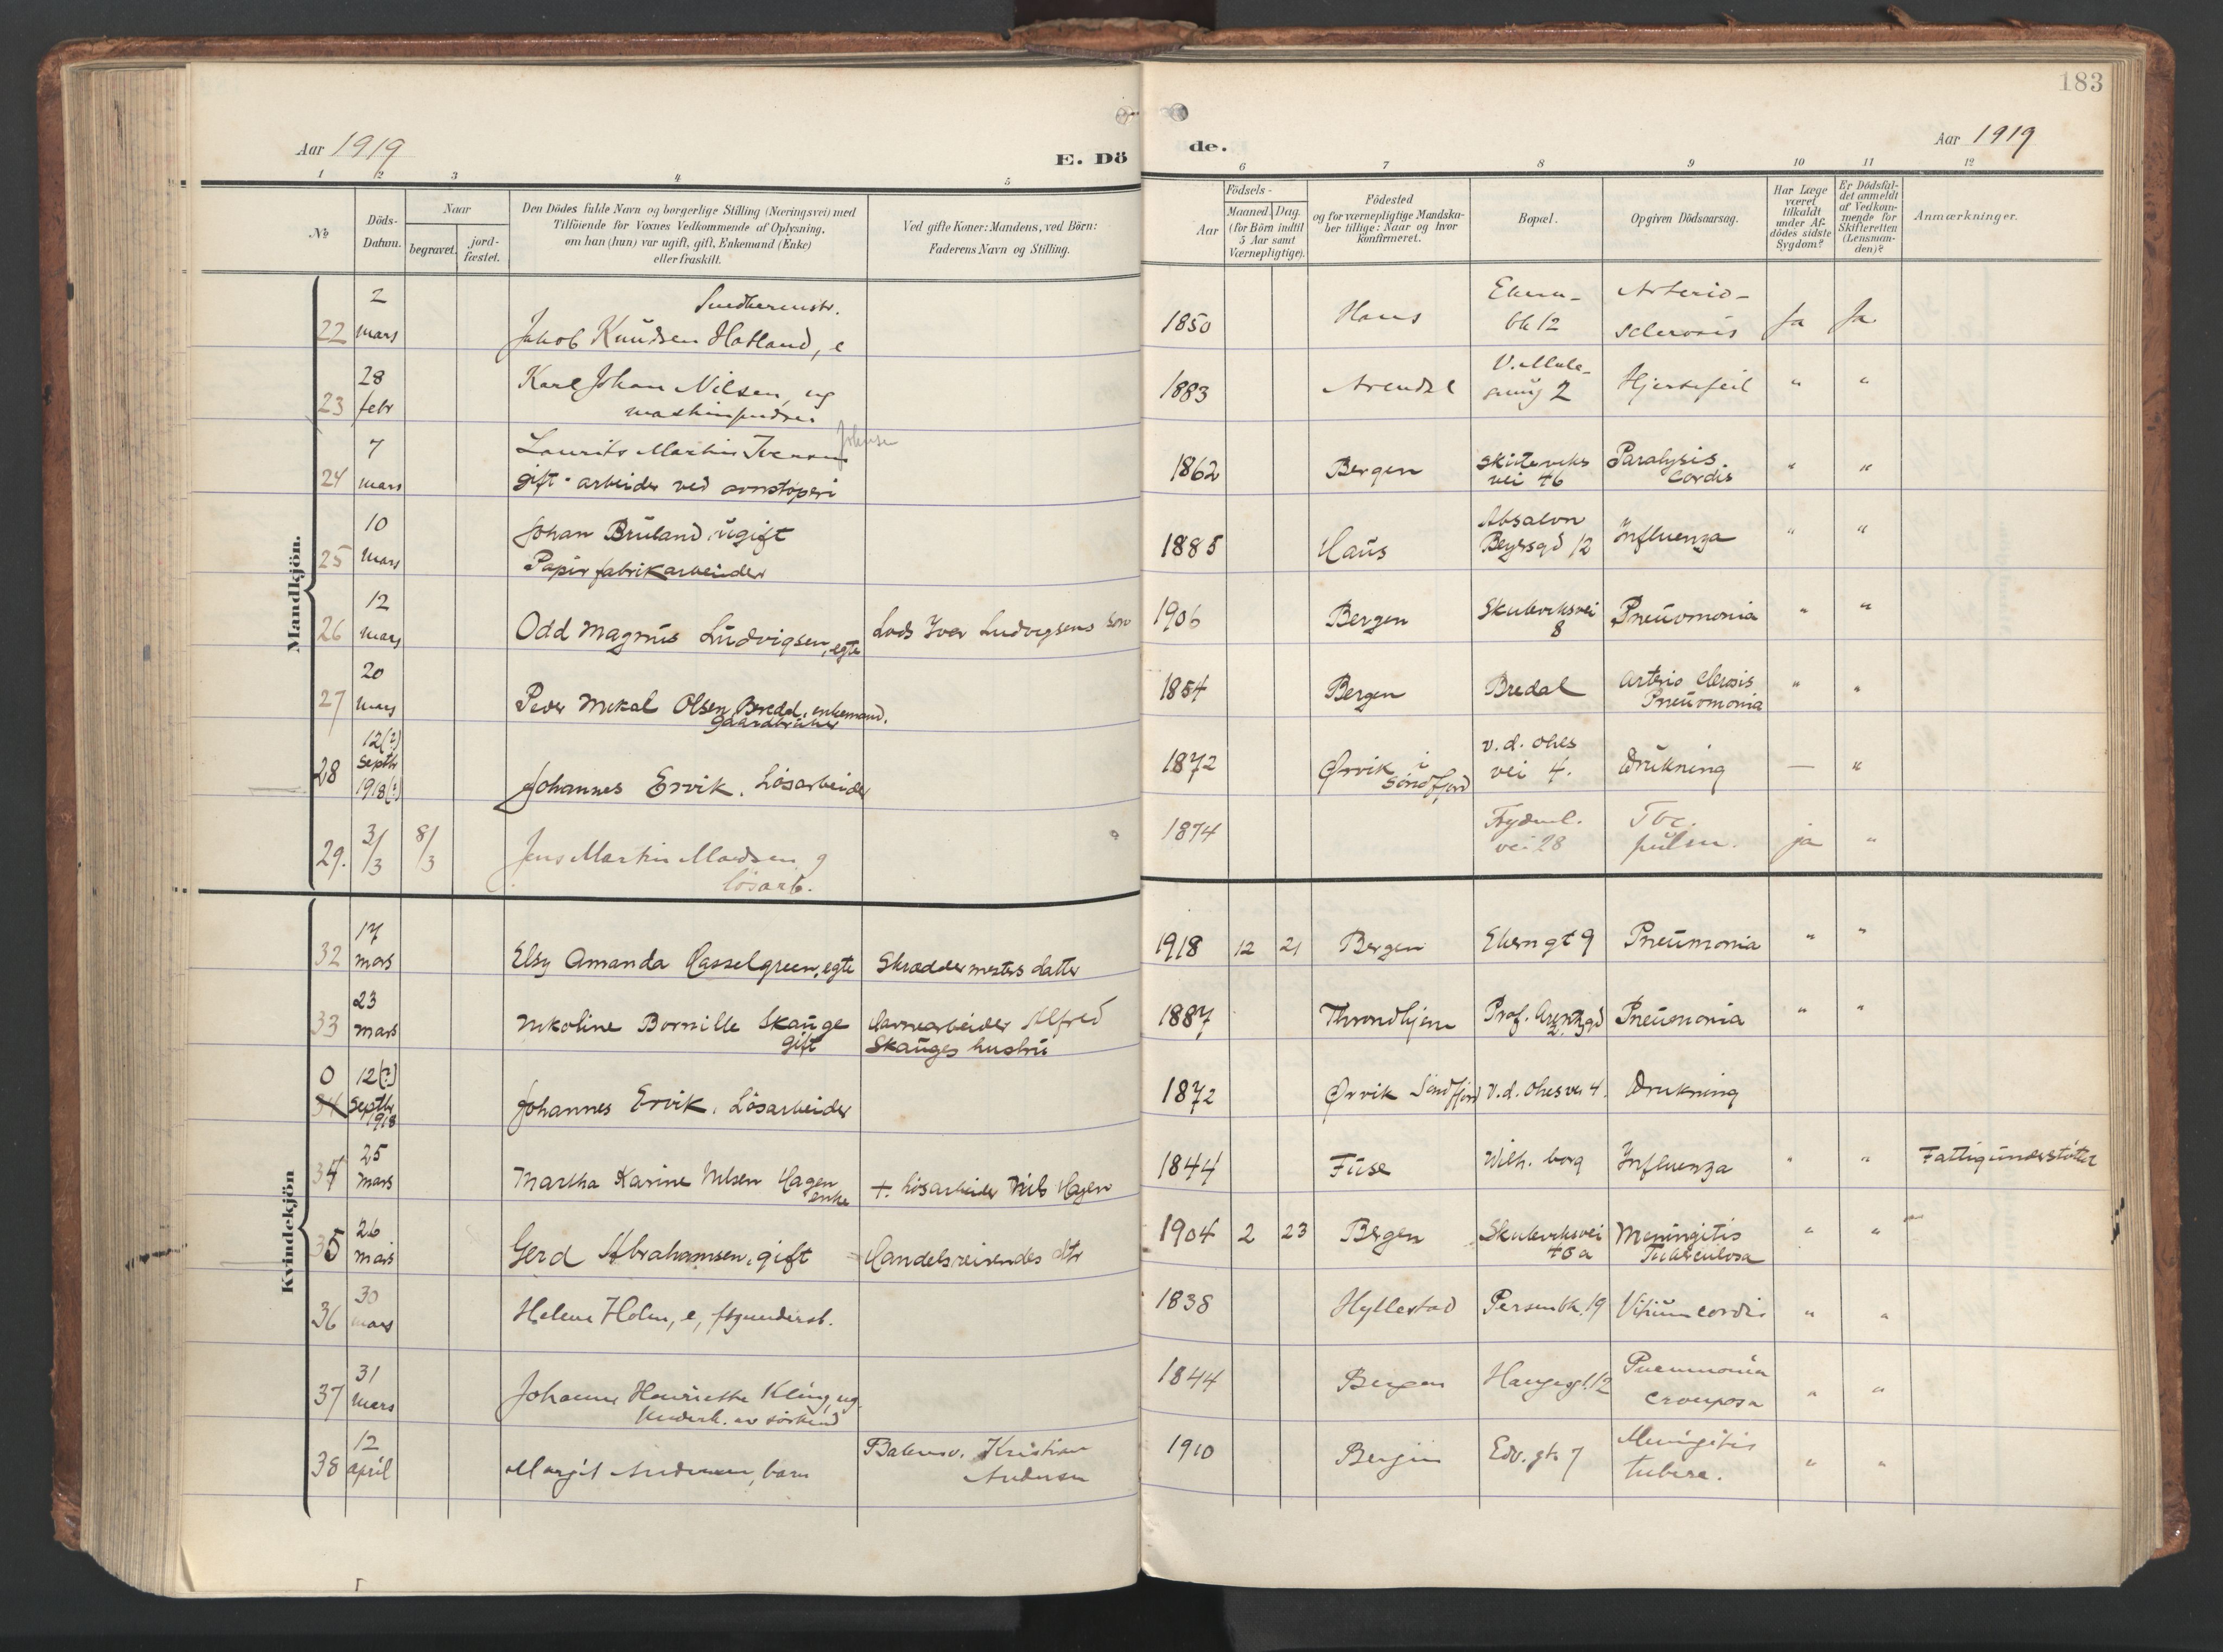 183
Aar 1919
E. Dö
de.
Aar 1919
1 2 3 4 5 6 7 8 9 10 11 12
№
Döds-
Datum.
Naar
begravet.
jord-
fæstet.
Den Dödes fulde Navn og borgerlige Stilling (Næringsvei) med
Tilföiende for Voxnes Vedkommende af Oplysning,
om han (hun) var ugift, gift, Enkemand (Enke)
eller fraskilt.
Ved gifte Koner: Mandens, ved Börn:
Faderens Navn og Stilling.
Födsels-
Aar
Maaned. Dag.
(for Börn indtil
5 Aar samt
Værnepligtige).
Födested
og for værnepligtige Mandska-
ber tillige: Naar og hvor
konfirmeret.
Bopæl.
Opgiven Dödsaarsag.
Har Læge
været
tilkaldt
under Af-
dödes sidste
Sygdom?
Er Dödsfal-
det anmeldt
af Vedkom-
mende for
Skifteretten
(Lensman-
den)?
Anmærkninger.
Mandkjön.
22
2
mars
Jakob Knudsen Hatland, e
1850
Haus
bk 12
Arterio-
sclerosis
Ja
Ja
23
28
febr
Karl Johan Nilsen, ug
1883
Arendal
2
Hjertefeil
"
"
24
7
mars
Laurits Martin Iversen
Johnsen
gift - arbeider ved ovnstøperi
1862
Bergen
Skuteviks
vei 46
Paralysis
Cordis
"
"
25
10
mars
Johan Bruland, ugift
Papirfabrikarbeider
1885
Haus
Absalon
Beyersgd 12
Influenza
"
"
26
12
mars
Odd Magnus Ludvigsen, egte
Lods Iver Ludvigsens søn
1906
Bergen
Skuteviksvei
8
Pneuomonia
"
"
27
20
mars
Peder Mikal Olsen Bredal, enkemand.
Gaardbruker
1854
Bergen
Bredal
Arterio clerosis
Pneuomonia
"
"
28
12(?)
Septbr
1918(?)
Johannes Ervik. Løsarbeider
1872
Ørvik i
Søndfjord
v. d. Ohes
vei 4.
Drukning
—
"
29.
3/3
8/3
Jens Martin Madsen g
løsarb.
1874
vei 28
Tbc.
pulm.
ja
"
Kvindekjön
32
17
mars
Elsy Amanda Casselgreen, egte
Skræddermesters datter
1918
12
21
Bergen
Ekerngt 9
Pneumonia
"
"
33
23
mars
Nikoline Bornille Skauge
gift
Havnearbeider Alfred
Skauges hustru
1887
Throndhjem
Prof. Arentzgd
Pneumonia
"
"
0
34
12(?)
Septbr
1918
Johannes Ervik. Løsarbeider
1872
Ørvik Søndfjord
V. d. Ohesvei 4.
Drukning
34
25
mars
Martha Karine Nilsen Hagen
enke
+. Løsarbeider Nils Hagen
1844
Fuse
Wilh. borg
Influenza
"
"
Fattigunderstøttet
35
26
mars
Gerd Abrahamsen, gift
Handelsreisendes dtr
1904
2
23
Bergen
Skuteviksvei
48a
Meningitis
Tuberculosa
"
"
36
30
mars
Helene Holm, e, ftgunderst.
1838
Hyllestad
Persenbk. 19
Vitium cordis
"
"
37
31
mars
Johanne Henriette Kling, ug.
Underh. av søskend
1844
Bergen
Haugegt. 12
Pneumonia
crouposa
"
"
38
12
april
Margit Andersen, barn
Kristian
Andersen
1910
Bergen
Edv. gt. 7
Meningitis
tuberc.
"
"